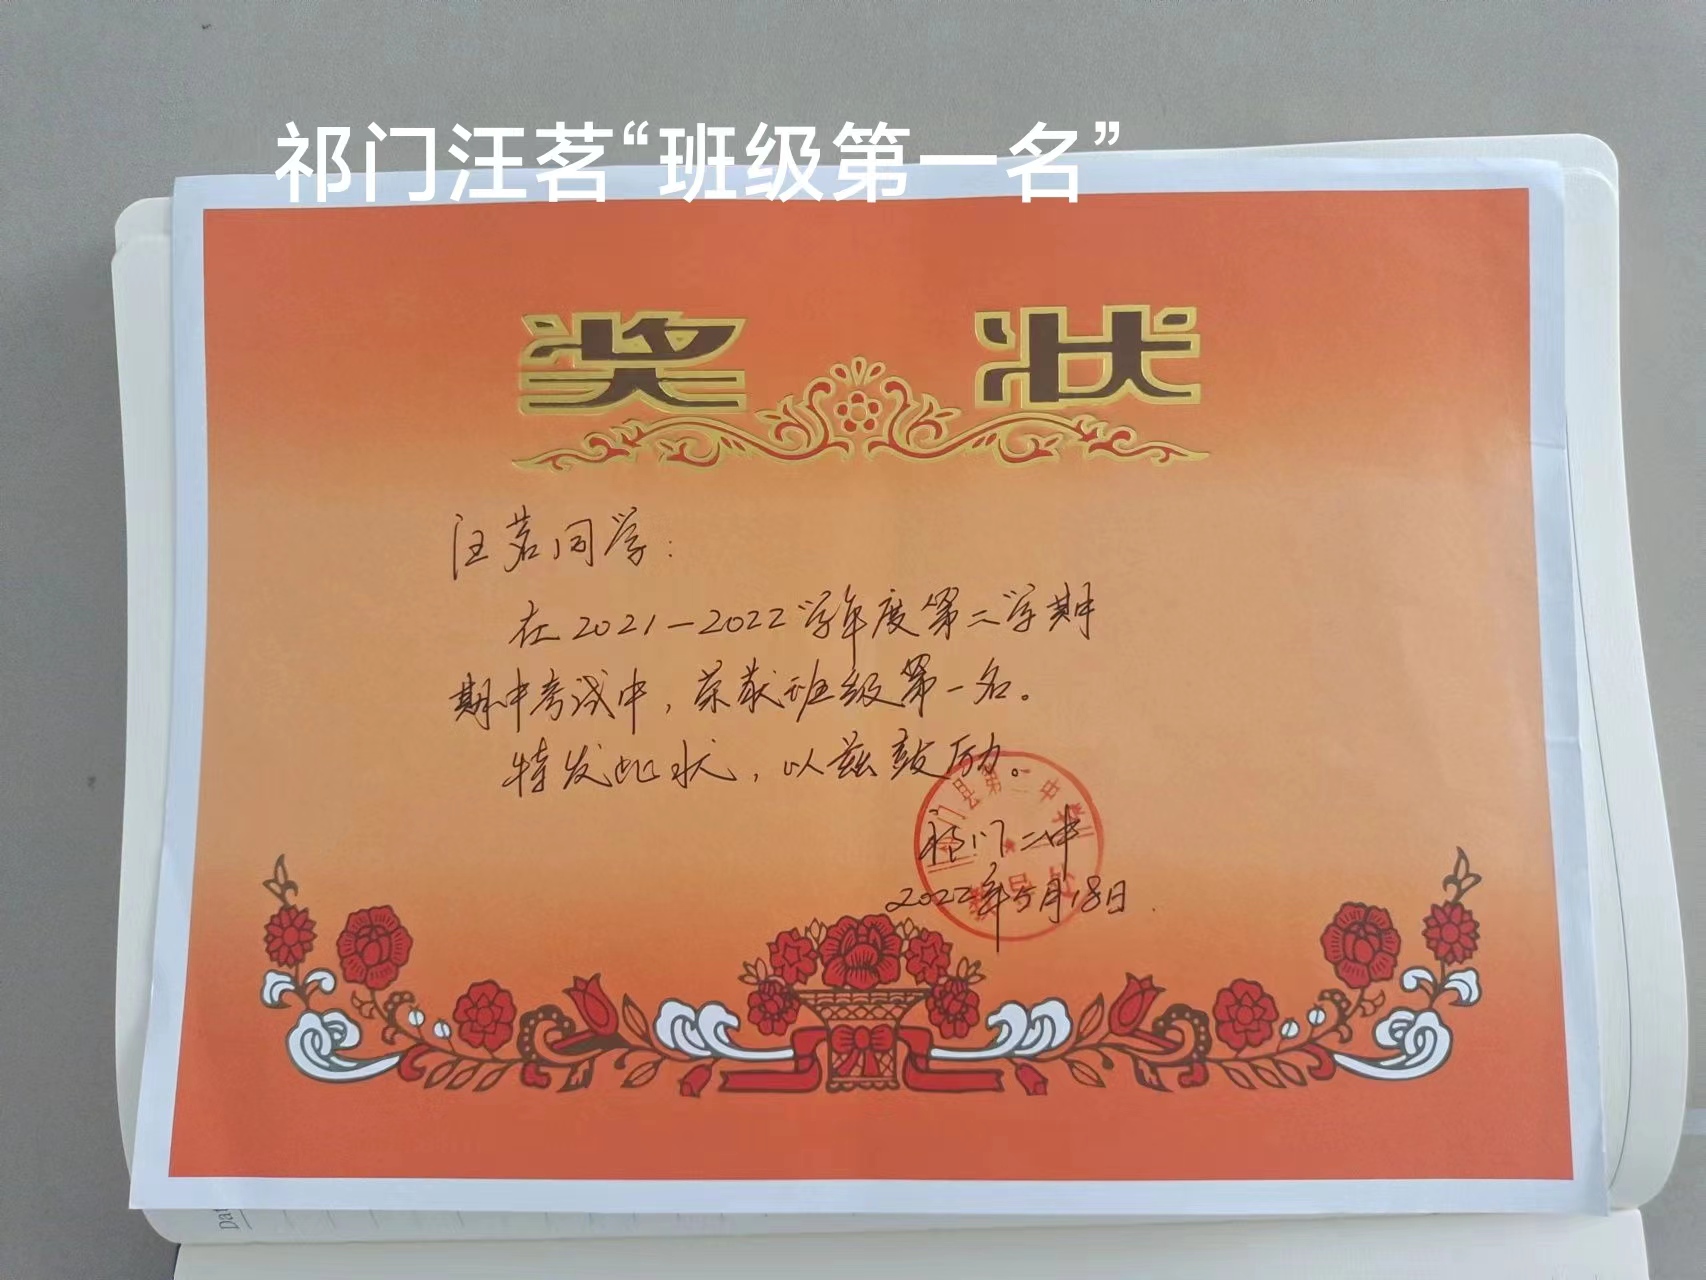 祁门汪茗“班级第一名”
奖 状
汪茗同学：
在2021-2022学年度第二学期
期中考试中，荣获班级第一名。
特发此状，以兹鼓励。
祁门二中
2022年5月18日.